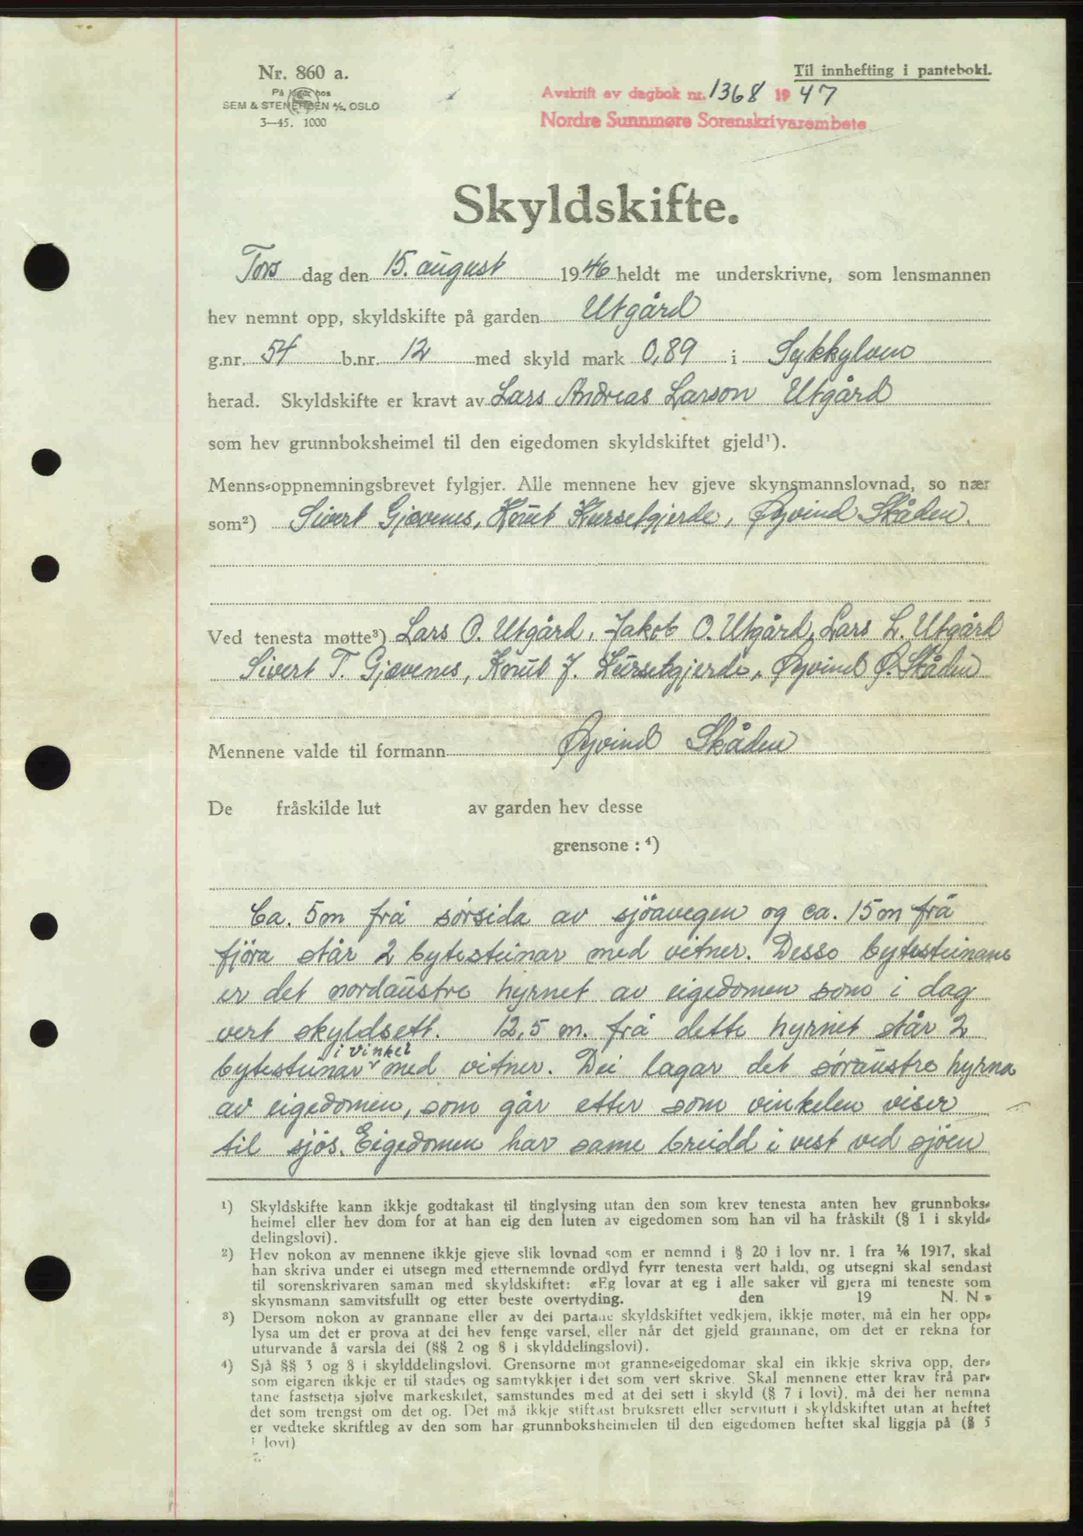 Nr. 860 a.
På lager hos
SEM & STENERSEN A/S, OSLO
3—45. 1000
Til innhefting i pantebok.
Avskrift av dagbok nr. 1368 1947
Nordre Sunnmøre Sorenskrivarembete
Skyldskifte.
Tors dag den 15. august 1946 heldt me underskrivne, som lensmannen
hev nemnt opp, skyldskifte på garden Utgård
g.nr. 54 b.nr. 12 med skyld mark 0,89 i Sykkylven
herad. Skyldskifte er kravt av Lars Andreas Larson Utgård
som hev grunnboksheimel til den eigedomen skyldskiftet gjeld¹).
Menns-oppnemningsbrevet fylgjer. Alle mennene hev gjeve skynsmannslovnad, so nær
som²) Sivert Gjævenes, Knut Kursetgjerde, Øyvind Skåden.
Ved tenesta møtte³) Lars O. Utgård, Jakob O. Utgård, Lars L. Utgård
Sivert T. Gjævenes, Knut J. Kursetgjerde, Øyvind Ø. Skåden
Mennene valde til formann Øyvind Skåden
De fråskilde lut av garden hev desse
grensone : ⁴)
Ca. 5m frå sørsida av sjöavegen og ca. 15m frå
fjöra står 2 bytesteinar med vitner. Desse bytesteinane
er det nordaustre hyrnet av eigedomen som i dag
vert skyldsett. 12,5 m. frå dette hyrnet står 2
i vinkel
bytesteinar med vitner. Dei lagar det søraustre hyrna
av eigedomen, som går etter som vinkelen viser
til sjös. Eigedomen har same breidd i vest ved sjöen
¹) Skyldskifte kann ikkje godtakast til tinglysing utan den som krev tenesta anten hev grunnboks-
heimel eller hev dom for at han eig den luten av eigedomen som han vil ha fråskilt (§ 1 i skyld-
delingslovi).
²) Hev nokon av mennene ikkje gjeve slik lovnad som er nemnd i § 20 i lov nr. 1 fra 1/6 1917, skal
han skriva under ei utsegn med etternemnde ordlyd fyrr tenesta vert haldi, og utsegni skal sendast
til sorenskrivaren saman med skyldskiftet: «Eg lovar at eg i alle saker vil gjera mi teneste som
skynsmann samvitsfullt og etter beste overtyding. den 19 N. N.»
³) Dersom nokon av grannane eller av dei partane skyldskiftet vedkjem, ikkje møter, må ein her opp-
lysa um det er prova at dei hev fenge varsel, eller når det gjeld grannane, om det er rekna for
uturvande å varsla dei (§§ 2 og 8 i skylddelingslovi).
⁴) Sjå §§ 3 og 8 i skylddelingslovi. Grensorne mot granne-eigedomar skal ein ikkje skriva opp, der-
som eigaren ikkje er til stades og samtykkjer i det som vert skrive. Skal mennene etter krav frå par-
tane fastsetja sjølve markeskilet, samstundes med at dei sett i skyld (§ 7 i lovi), må dei her nemna
det som trengst om det og. Det må ikkje stiftast bruksrett eller servitutt i skyldskiftet utan at heftet
er vedteke skriftleg av den som har grunnboksheimelen til den eigedomen heftet skal liggja på (§ 5
i lovi)